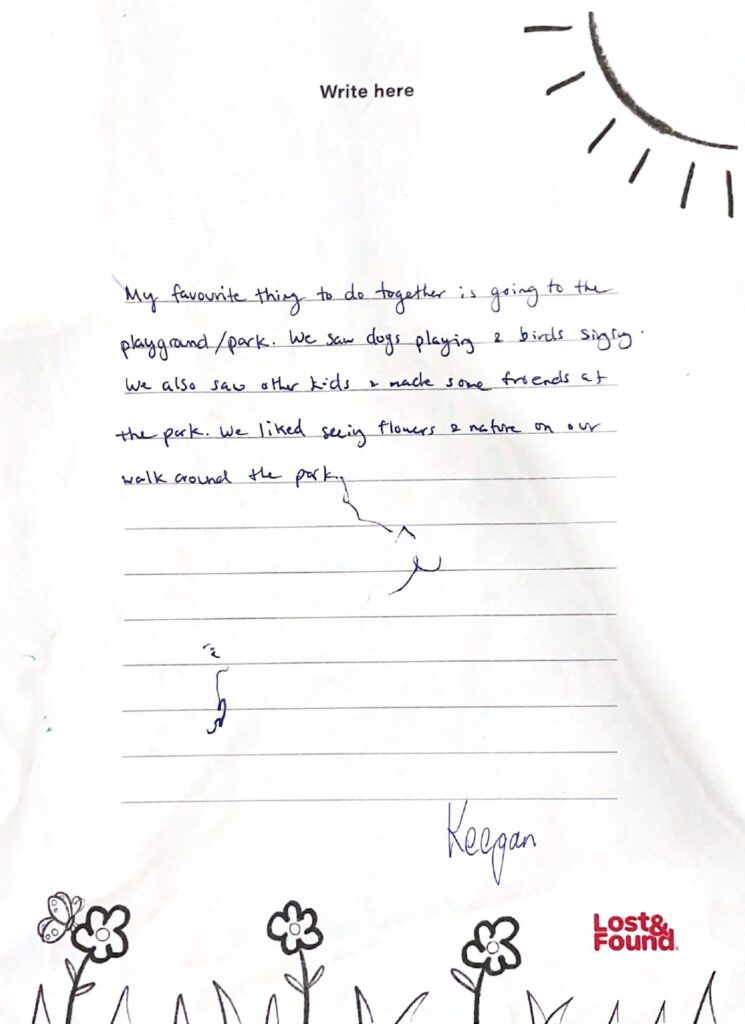 Write here
My favourite thing to do together is going to the
playground/park. We saw dogs playing & birds singing.
We also saw other kids & made some friends at
the park. We liked seeing flowers & nature on our
walk around the park.
Keegan
Lost&
Found